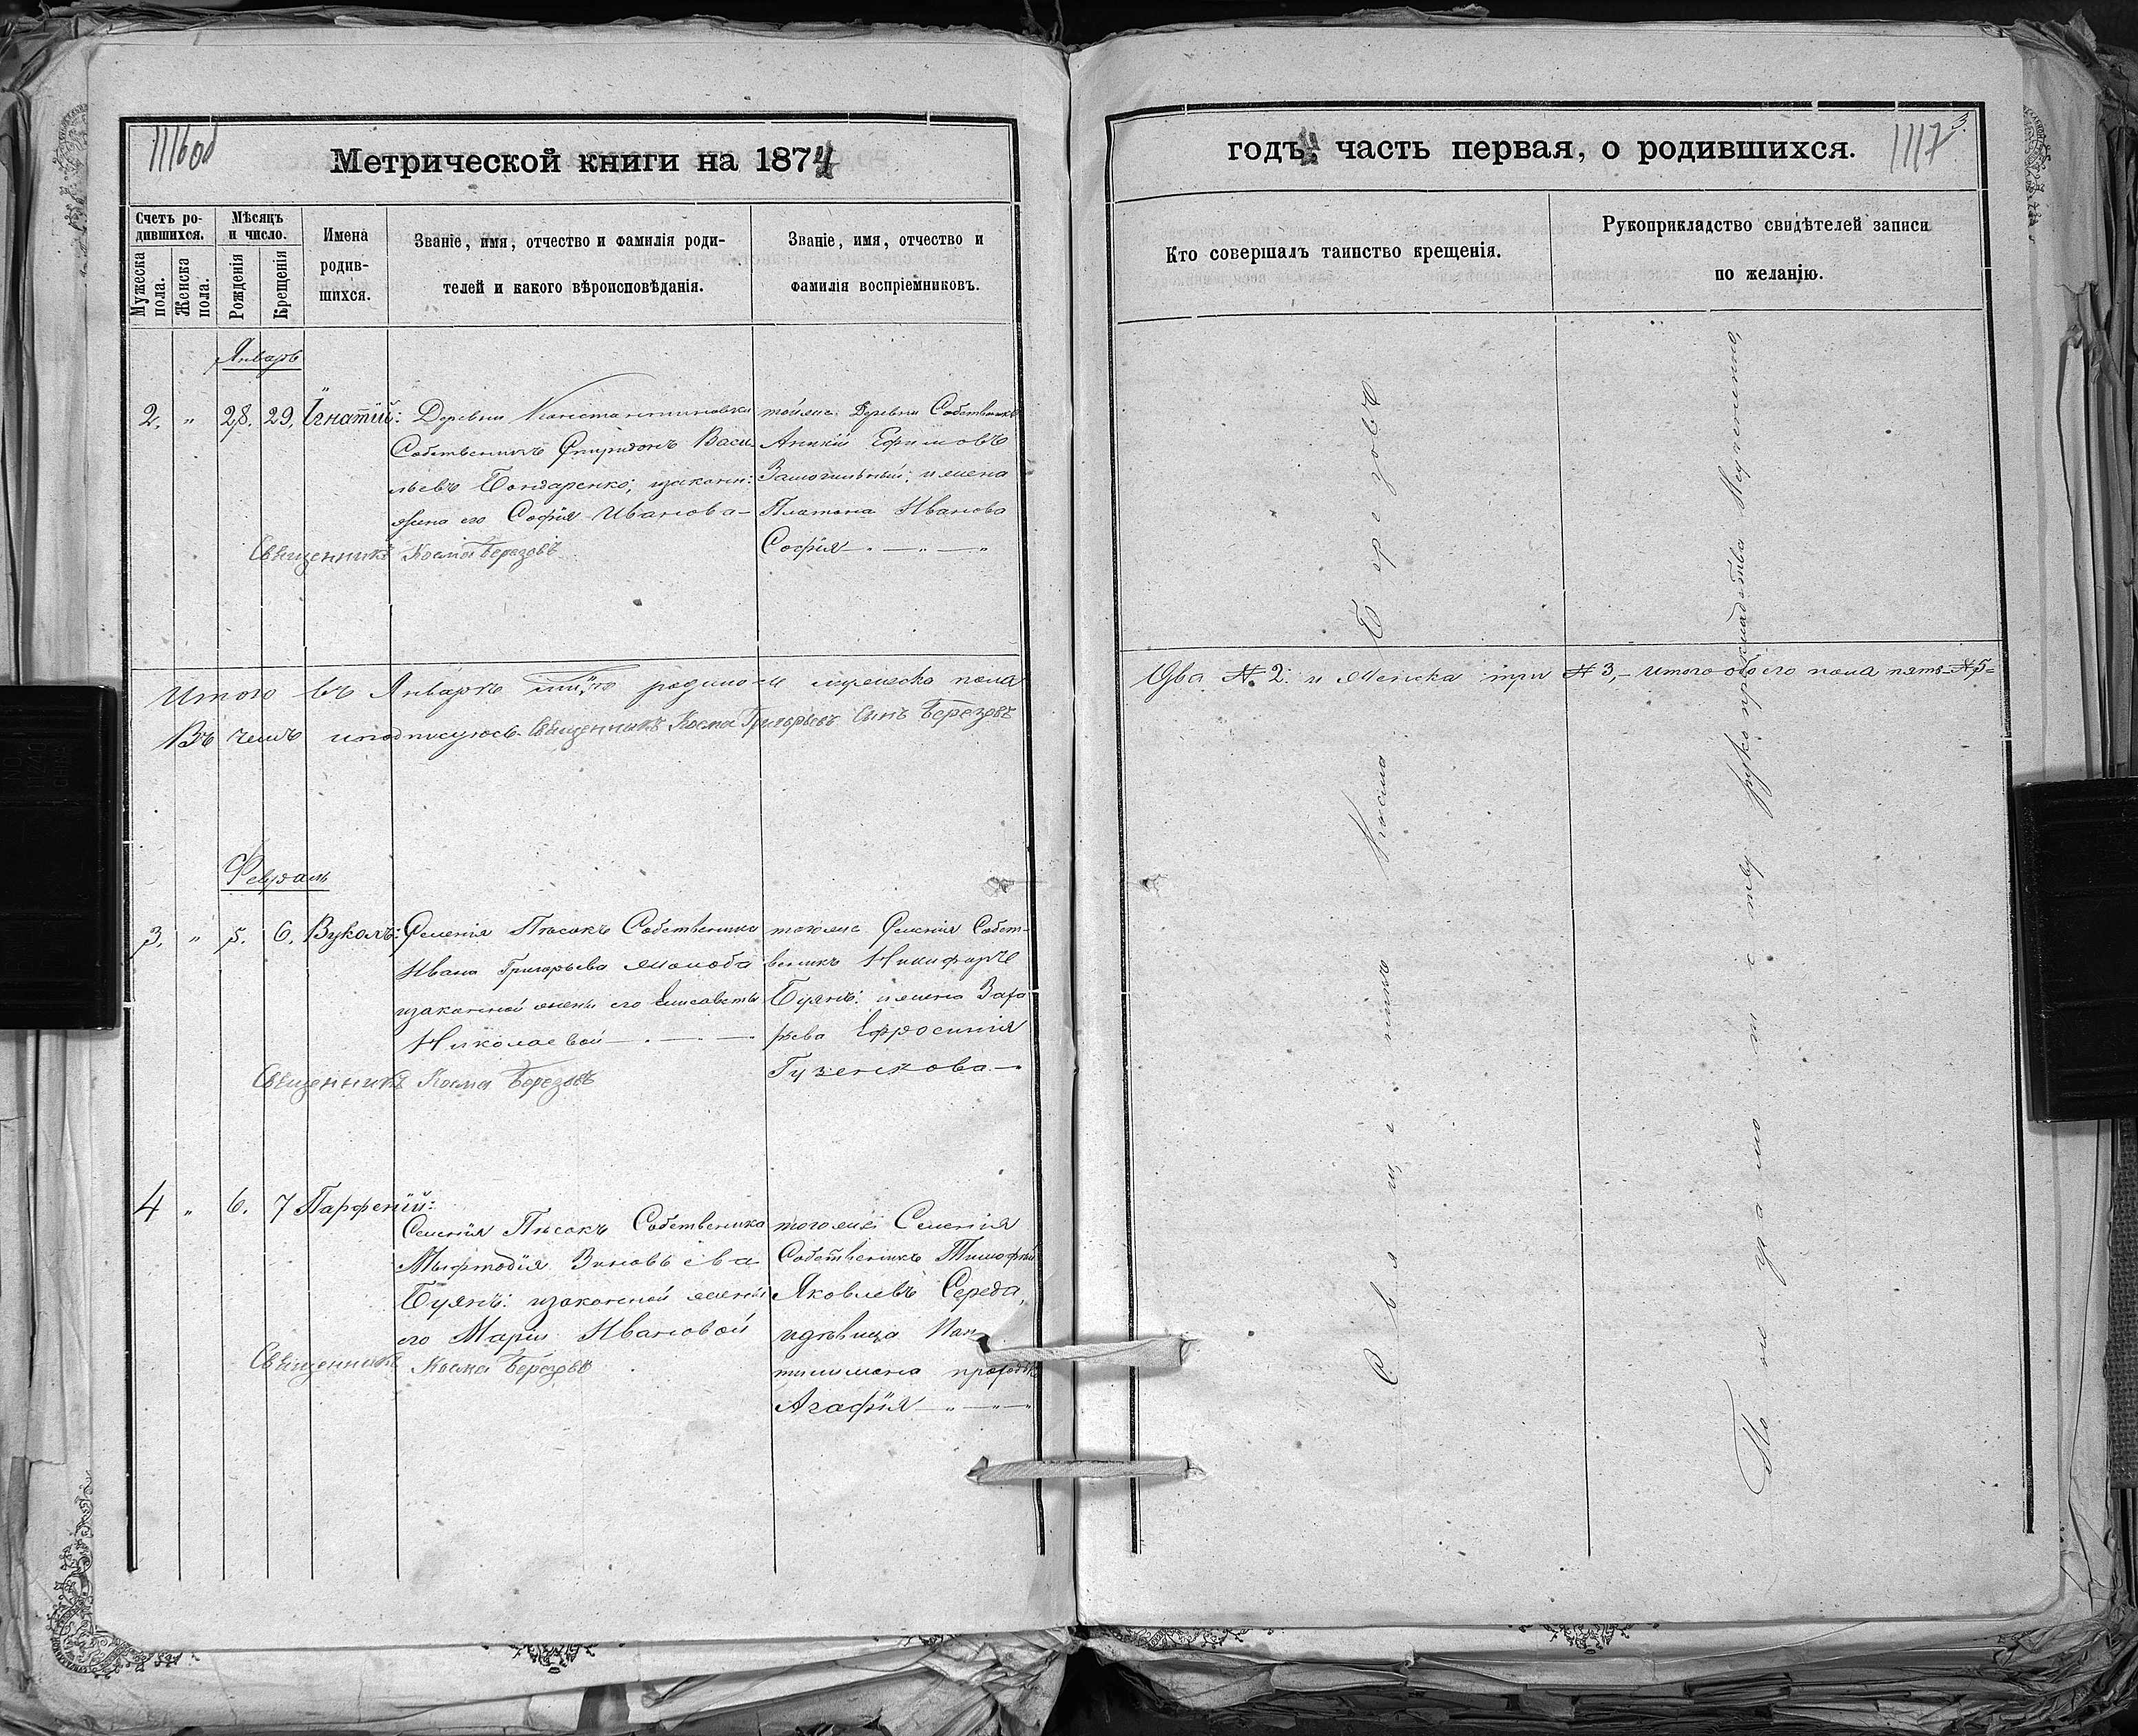 1116об
Метрической книги на 1874
Счетъ ро-
дившихся.
Мужеска
пола.
Женска
пола.
Мѣсяцъ
и число.
Рожденія
Крещенія
Имена
родив-
шихся.
Званіе, имя, отчество и фамилія роди-
телей и какого вѣроисповѣданія.
Званіе, имя, отчество и
фамилія воспріемниковъ.
Январь
2. " 28. 29. Игнатій:
Деревни Константиновки
Собственникъ Спиридонъ Васи
льевъ Бондаренко; изаконн:
жена его Софія Иванова —
Священникъ Косма Березовъ
тойже Деревни Собственникъ
Аникій Ефимовъ
Замогильный; и жена
Платона Иванова
Софія
Итого въ Январѣ родилось мужеска пола
Въ чемъ и подписуюсь Священникъ Косма Григорьевъ Сынъ Березовъ
Февраль
3. " 5. 6. Вуколъ:
Селенія Пѣсокъ Собственника
Ивана Григорьева
изаконной жены его Елисаветы
Николаевой
Священникъ Косма Березовъ
тогоже Селенія Собст-
венникъ Никифоръ
Буянъ: и жена Заха
рьева Ефросинія
Гузенкова —
4 " 6. 7 Парфеній:
Селенія Пѣсокъ Собственника
Мефтодія Зиновьева
Буянъ: изаконной жены
его Маріи Ивановой
Священникъ Косма Березовъ
тогоже Селенія
Собственникъ Тимофѣй
Яковлевъ Середа,
идѣвица Пан
тилимона
Агафія
годъ, часть первая, о родившихся.
1117
3.
Кто совершалъ таинство крещенія.
Рукоприкладство свидѣтелей записи
по желанію.
Два №. 2. и Женска три № 3, — итого обоего пола пять — № 5 =
Священникъ Косма Березовъ
По неграмотству рукоприкладства Неучинено,